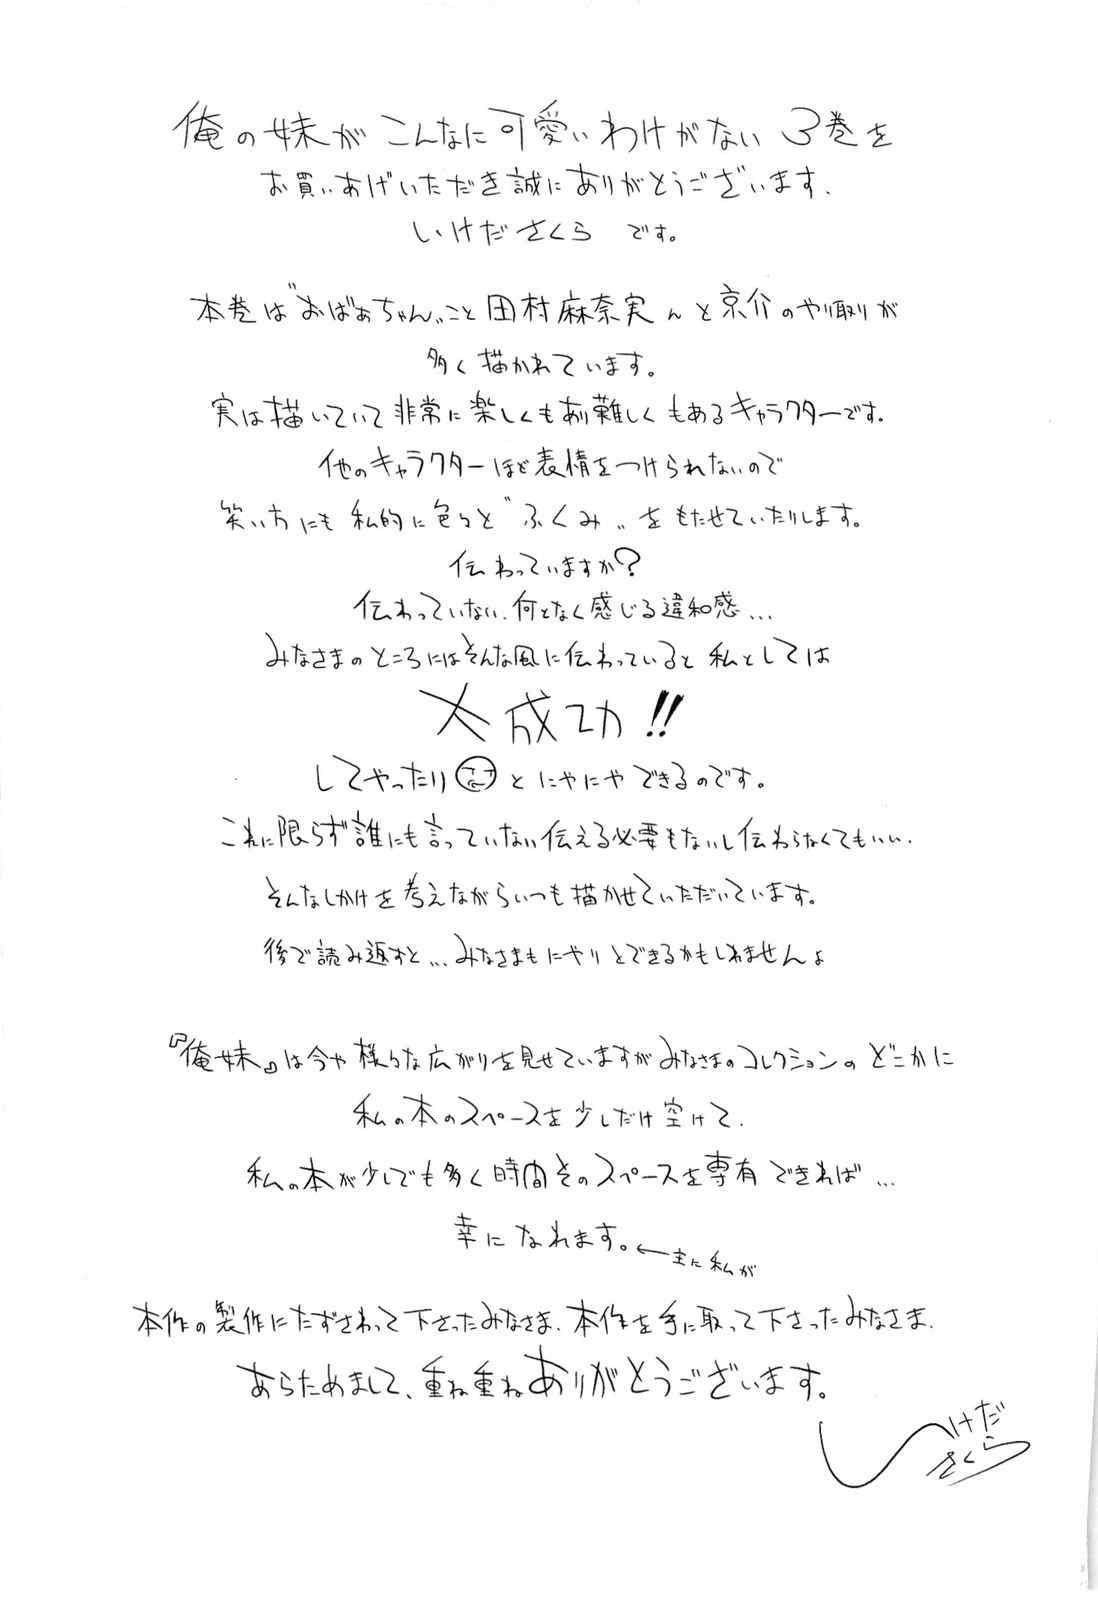 俺の妹がこんなに可愛いわけがない 3巻を
お買いあげいただき誠にありがとうございます.
いけださくら です。
本巻は"おばぁちゃん"こと田村麻奈実んと京介のやり取りが
多く描かれています。
実は描いていて非常に楽しくもあり難しくもあるキャラクターです.
他のキャラクターほど表情をつけられないので
笑い方にも私的に色々と"ふくみ"をもたせていたりします。
伝わっていますか?
伝わっていない.何となく感じる違和感...
みなさまのところにはそんな風に伝わっていると私としては
大成功!!
してやったりとにやにやできるのです。
これに限らず誰にも言っていない伝える必要もないし伝わらなくてもいい.
そんなしかけを考えながらいつも描かせていただいています。
後で読み返すと...みなさまもにやりとできるかもしれませんよ
『俺妹』は今や様々な広がりを見せていますがみなさまのコレクションのどこかに
私の本のスペースを少しだけ空けて.
私の本が少しでも多く時間そのスペースを専有できれば...
幸になれます。←主に私が
本作の製作にたずさわって下さったみなさま.本作を手に取って下さったみなさま.
あらためまして、重ね重ねありがとうございます。
いけだ
さくら